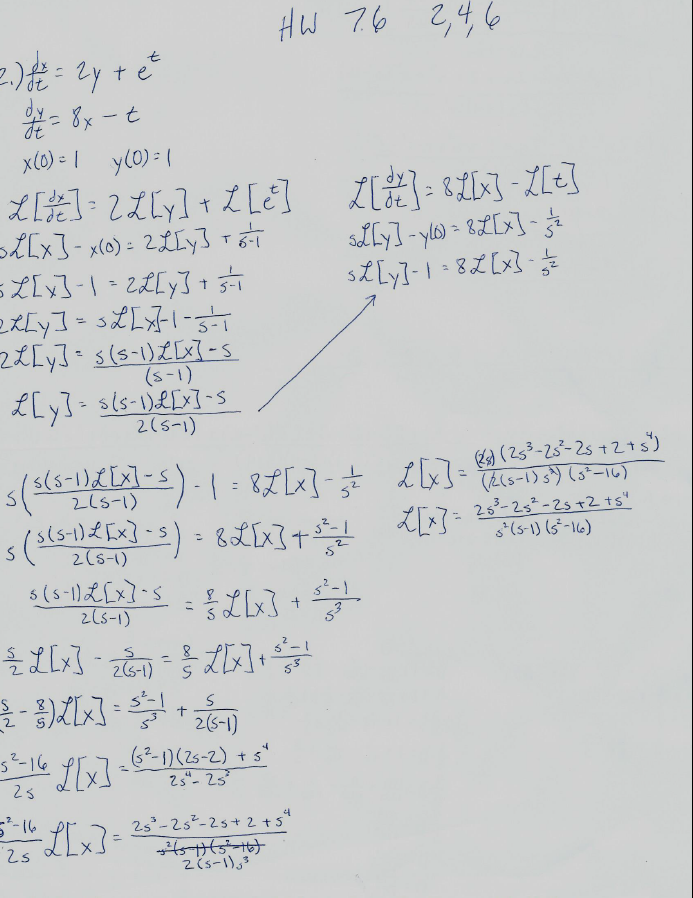 HW 7.6 2,4,6
2.) dx/dt = 2y + e^t
dy/dt = 8x - t
x(0)=1 y(0)=1
ℒ[dx/dt] = 2ℒ[y] + ℒ[e^t]
sℒ[x] - x(0) = 2ℒ[y] + 1/(s-1)
sℒ[x] - 1 = 2ℒ[y] + 1/(s-1)
2ℒ[y] = sℒ[x] - 1 - 1/(s-1)
2ℒ[y] = (s(s-1)ℒ[x] - s)/(s-1)
ℒ[y] = (s(s-1)ℒ[x] - s)/(2(s-1))
ℒ[dy/dt] = 8ℒ[x] - ℒ[t]
sℒ[y] - y(0) = 8ℒ[x] - 1/s²
sℒ[y] - 1 = 8ℒ[x] - 1/s²
s((s(s-1)ℒ[x] - s)/(2(s-1))) - 1 = 8ℒ[x] - 1/s²
s((s(s-1)ℒ[x] - s)/(2(s-1))) = 8ℒ[x] + (s²-1)/s²
(s(s-1)ℒ[x] - s)/(2(s-1)) = 8/s ℒ[x] + (s²-1)/s³
s/2 ℒ[x] - s/(2(s-1)) = 8/s ℒ[x] + (s²-1)/s³
(s/2 - 8/s)ℒ[x] = (s²-1)/s³ + s/(2(s-1))
(s²-16)/2s ℒ[x] = ((s²-1)(2s-2) + s⁴)/(2s⁴ - 2s³)
(s²-16)/2s ℒ[x] = (2s³-2s²-2s+2+s⁴)/(2(s-1)s³)
ℒ[x] = (2s)(2s³-2s²-2s+2+s⁴)/((2(s-1)s³)(s²-16))
ℒ[x] = (2s³-2s²-2s+2+s⁴)/(s²(s-1)(s²-16))